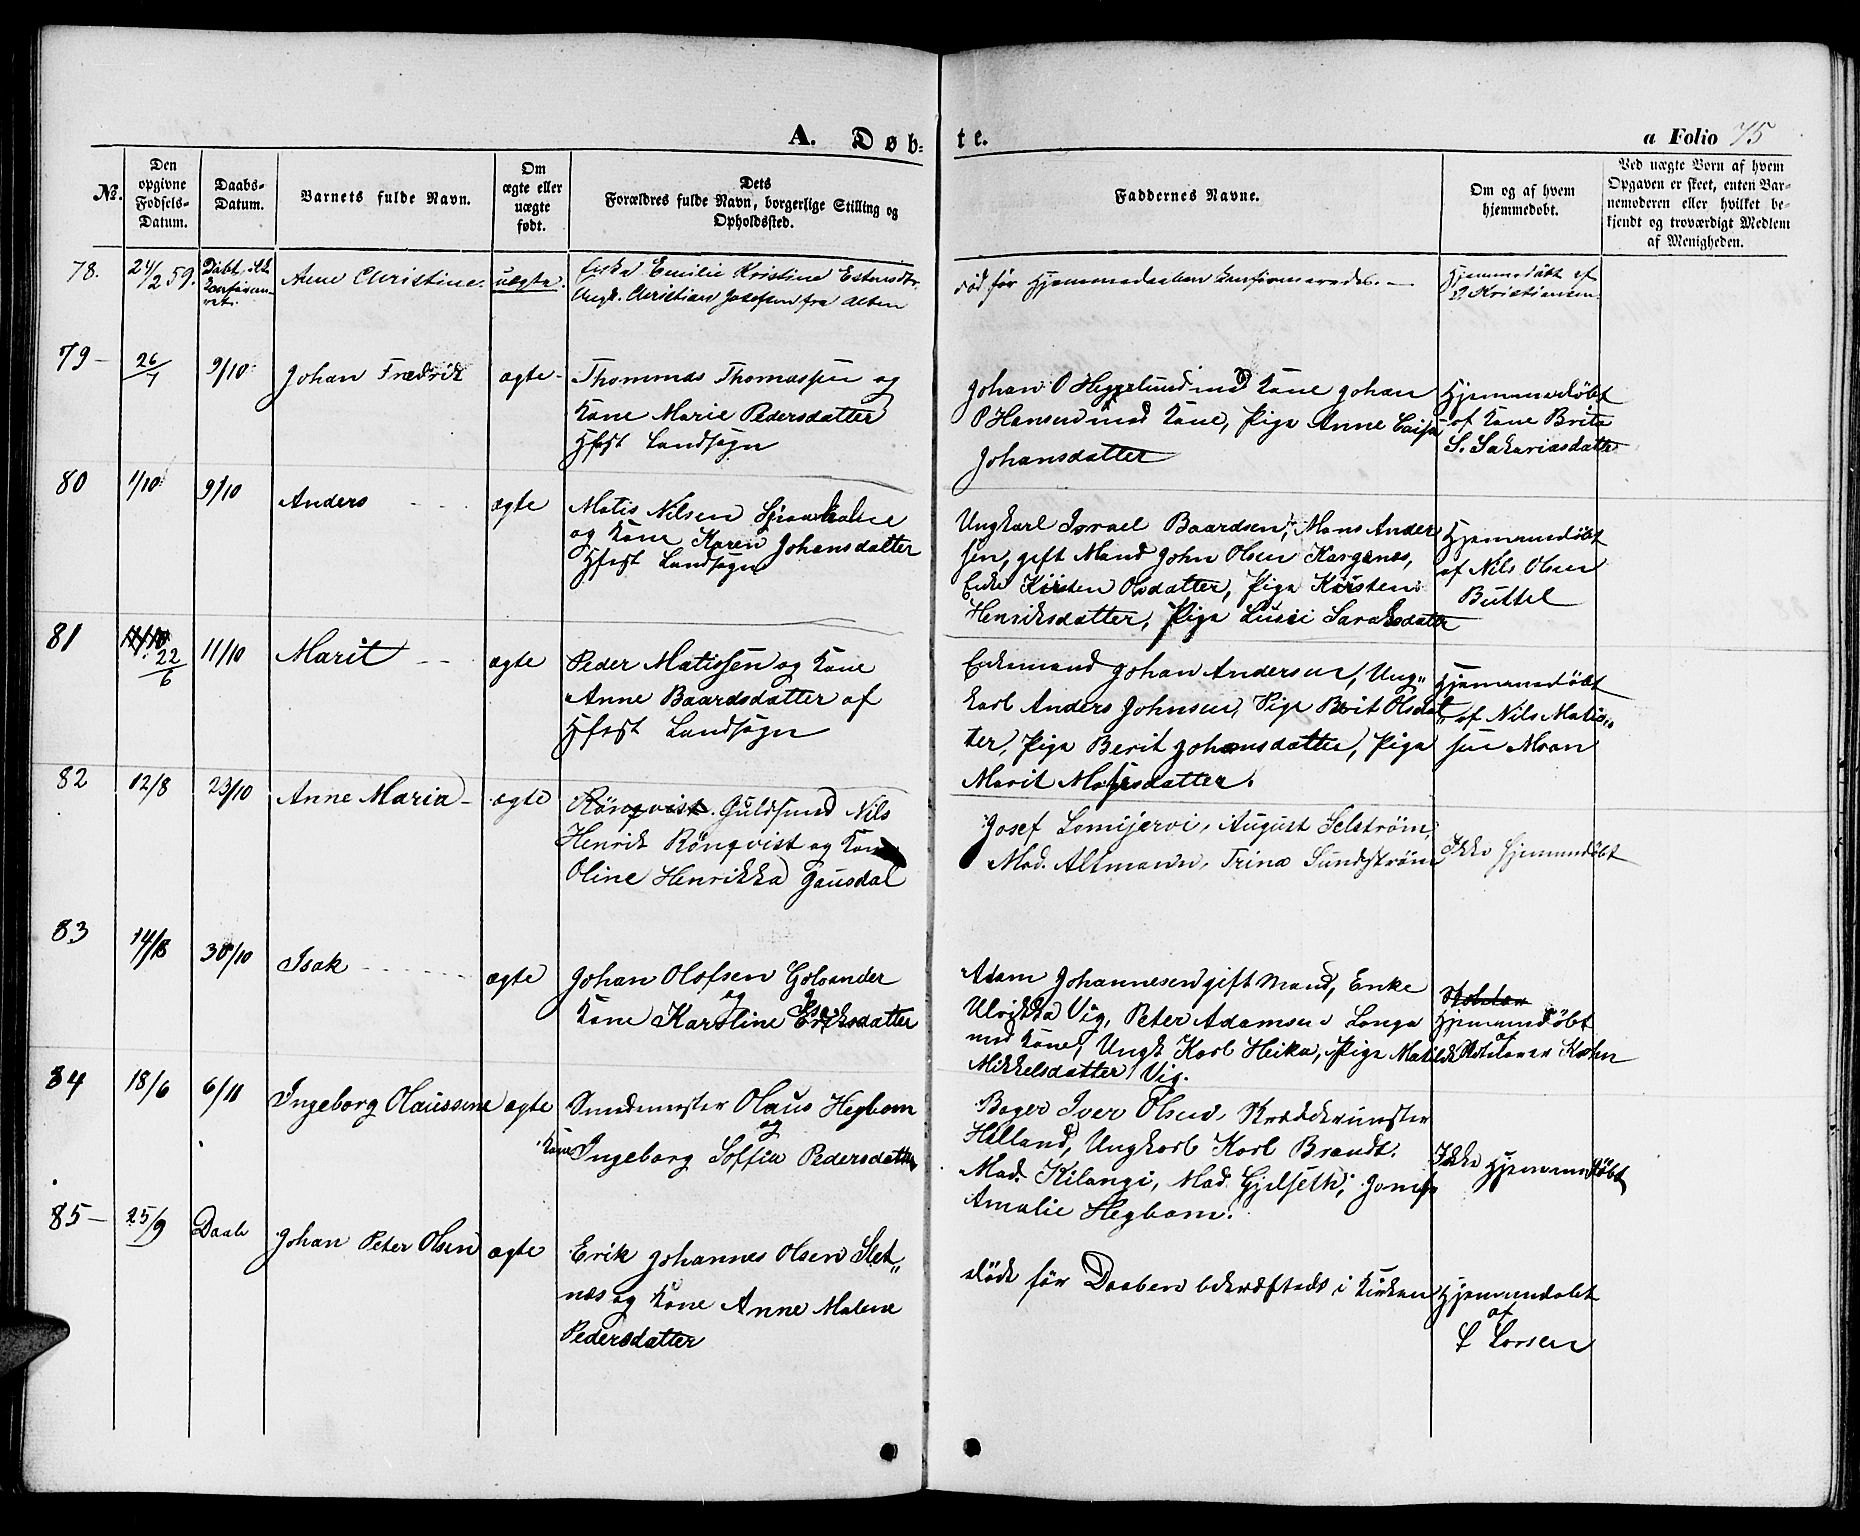 A. Døb-
te.
a Folio 75
№.
Den
opgivne
Fødsels-
Datum.
Daabs-
Datum.
Barnets fulde Navn.
Om
ægte eller
uægte
født.
Dets
Forældres fulde Navn, borgerlige Stilling og
Opholdssted.
Faddernes Navne.
Om og af hvem
hjemmedøbt.
Ved uægte Børn af hvem
Opgaven er skeet, enten Bar-
nemoderen eller hvilket be-
kjendt og troværdigt Medlem
af Menigheden.
78.
24/2 59.
Døbt, ikke
Anne Christine.
uægte.
Emilie Kristine Estensdtr.
Ungk. Christian Josefsen fra Alten
død før Hjemmedaaben konfirmeredes. —
Hjemmedøbt af
Kristiansen
79 –
26/7
9/10
Johan Fredrik
ægte –
Thommas Thomassen og
Kone Marie Pedersdatter
Hfest Landsogn
Johan O Heggelund med Kone Johan
P Hansen med Kone, Pige Anne Caisa
Johansdatter
Hjemmedøbt
af Kone Brita
S. Sakariasdatter
80
1/10
9/10
Anders
ægte
Matis Nilsen
og Kone Karen Johansdatter
Hfest Landsogn
Ungkarl Israel Baardsen, Mons Ander
sen, gift Mand John Olsen Kargenes,
Enke Kirsten Olsdatter, Pige Kirsten
Henriksdatter, Pige Lussi Saraksdatter
Hjemmedøbt
af Nils Olsen
Buttel
81
11/10
22/6
11/10
Marit
ægte
Peder Matissen og Kone
Anne Baardsdatter af
Hfest Landsogn
Enkemand Johan Andersen, Ung"
karl Anders Johnsen, Pige Berit Olsdat
ter, Pige Berit Johansdatter, Pige
Marit Matisdatter.
Hjemmedøbt
af Nils Matis"
sen Moan
82
12/8
23/10
Anne Maria –
ægte
Rönqvist. Guldsmed Nils
Henrik Rönqvist og Kone
Oline Henrikka Gausdal
Josef Lomijervi, August Selström,
Mad. Altmann, Trina Sundström
Ikke hjemmedøbt
83
14/8
30/10
Isak
ægte
Johan Olofsen Golvander
og
Kone Karoline Eriksdatter
Adam Johannesen gift Mand, Enke
Ulrikka Vig, Peter Adamsen Longa
med Kone, Ungk Karl Heika, Pige Matilde
Mikkelsdatter Vig.
Hjemmedøbt
af
84
18/6
6/11
Ingeborg Olaussine
ægte
Smedemester Olaus Hegbom
og
Kone Ingeborg Soffia Pedersdatter
Bager Iver Olsen, Kræddermester
Helland, Ungkarl Karl Brandt.
Mad. Kilangi, Mad. Gjelseth, Jomfr
Amalie Hegbom.
Ikke Hjemmedøbt
85 –
25/9
Daab
Johan Peter Olsen
ægte
Erik Johannes Olsen Slet"
næs og Kone Anne Malene
Pedersdatter
døde før Daaben bekræftedes i Kirken
Hjemmedøbt
af
L Larsen